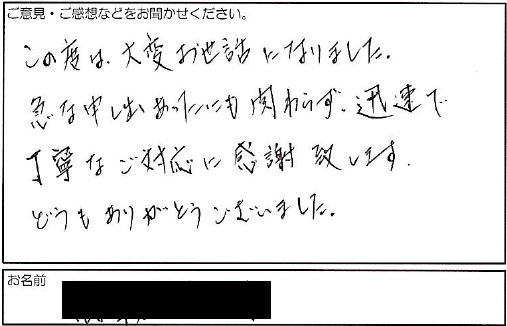 ご意見・ご感想などをお聞かせください。
この度は、大変お世話になりました。
急な申し出あったにも関わらず、迅速で
丁寧なご対応に感謝致します。
どうもありがとうございました。
お名前